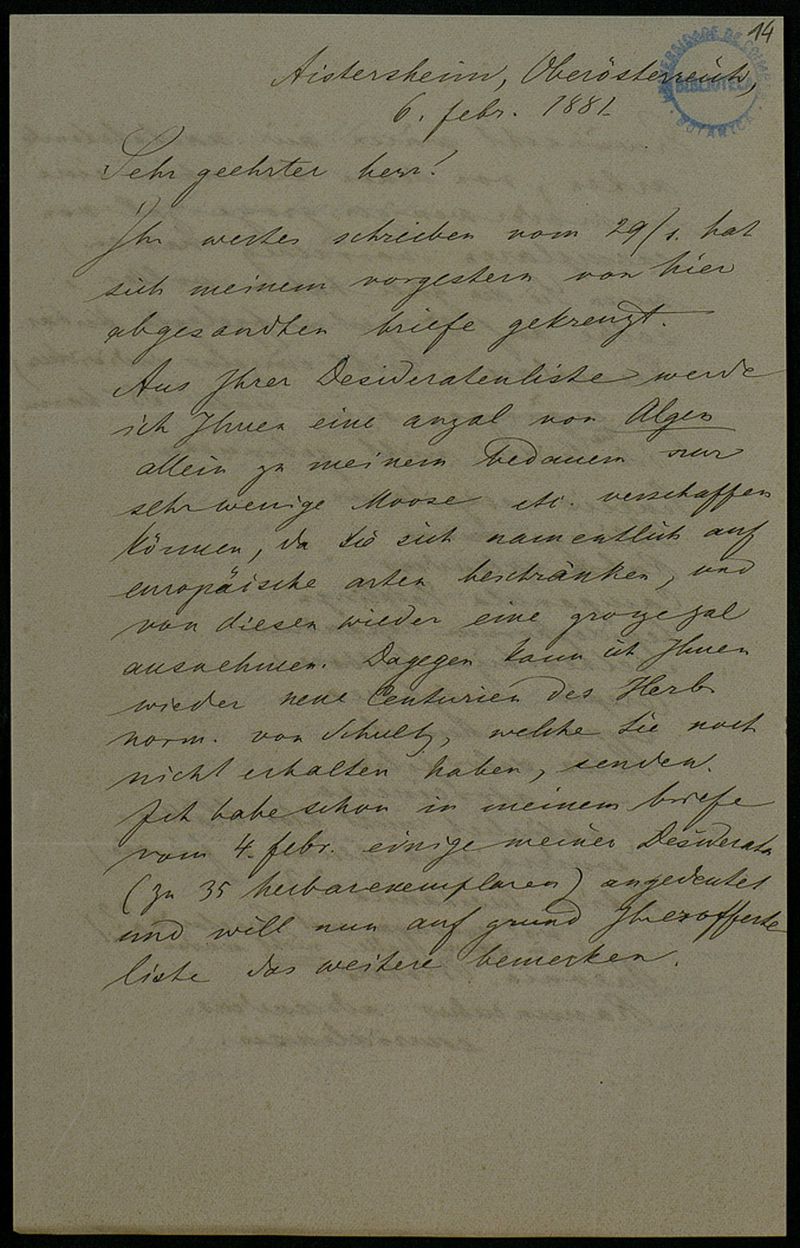 14
UNIVERSIDADE DE COIMBRA
BIBLIOTECA
BOTANICA
Aistersheim, Oberösterreich,
6. febr. 1881
Sehr geehrter herr!
Ihr wertes schreiben vom 29/1. hat
sich meinem vorgestern von hier
abgesandten briefe gekreuzt.
Aus Ihrer Desideratenliste werde
ich Ihnen eine anzal von Algen
allein zu meinem bedauern nur
sehr wenige Moose etc. verschaffen
können, da Sie sich namentlich auf
europäische arten beschränken, und
von diesen wieder eine grosze zal
ausnehmen. Dagegen kann ich Ihnen
wieder neue Centurien des Herb.
norm. von Schultz, welche Sie noch
nicht erhalten haben, senden.
Ich habe schon in meinem briefe
vom 4. febr. einige meiner Desiderata
(zu 35 herbarexemplaren) angedeutet
und will nun auf grund Ihrer offerte
liste das weitere bemerken.